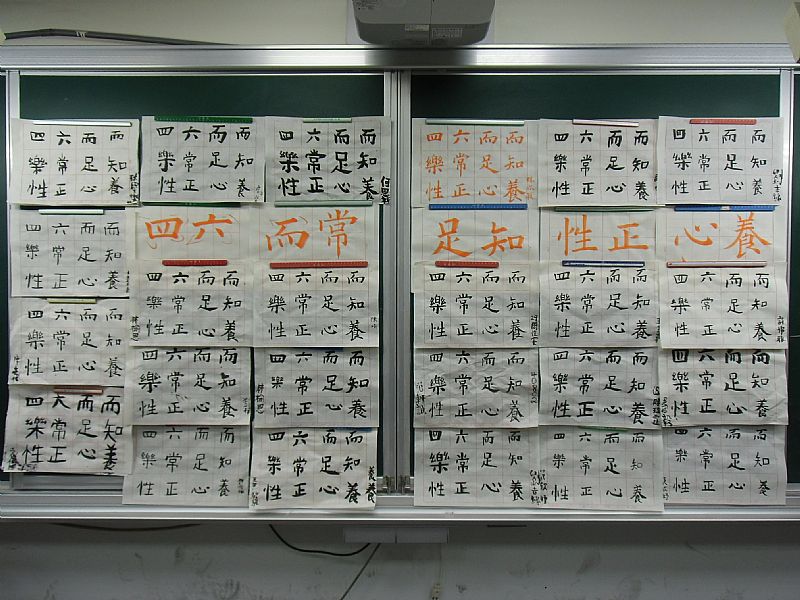 而而六四
知足常樂
養心正性
而而六四
知足常樂
養心正性
而而六四
知足常樂
養心正性
而而六四
知足常樂
養心正性
而而六四
知足常樂
養心正性
而而六四
知足常樂
養心正性
養心
正性
知足
常而
六四
而而六四
知足常樂
養心正性
而而六四
知足常樂
養心正性
而而六四
知足常樂
養心正性
而而六四
知足常樂
養心正性
而而六四
知足常樂
養心正性
而而六四
知足常樂
養心正性
而而六四
知足常樂
養心正性
而而六四
知足常樂
養心正性
而而六四
知足常樂
養心正性
而而六四
知足常樂
養心正性
而而六四
知足常樂
養心正性
而而六四
知足常樂
養心正性
而而六四
知足常樂
養心正性
而而六四
知足常樂
養心正性
而而六四
知足常樂
養心正性
而而六四
知足常樂
養心正性
而而六四
知足常樂
養心正性
而而六四
知足常樂
養心正性